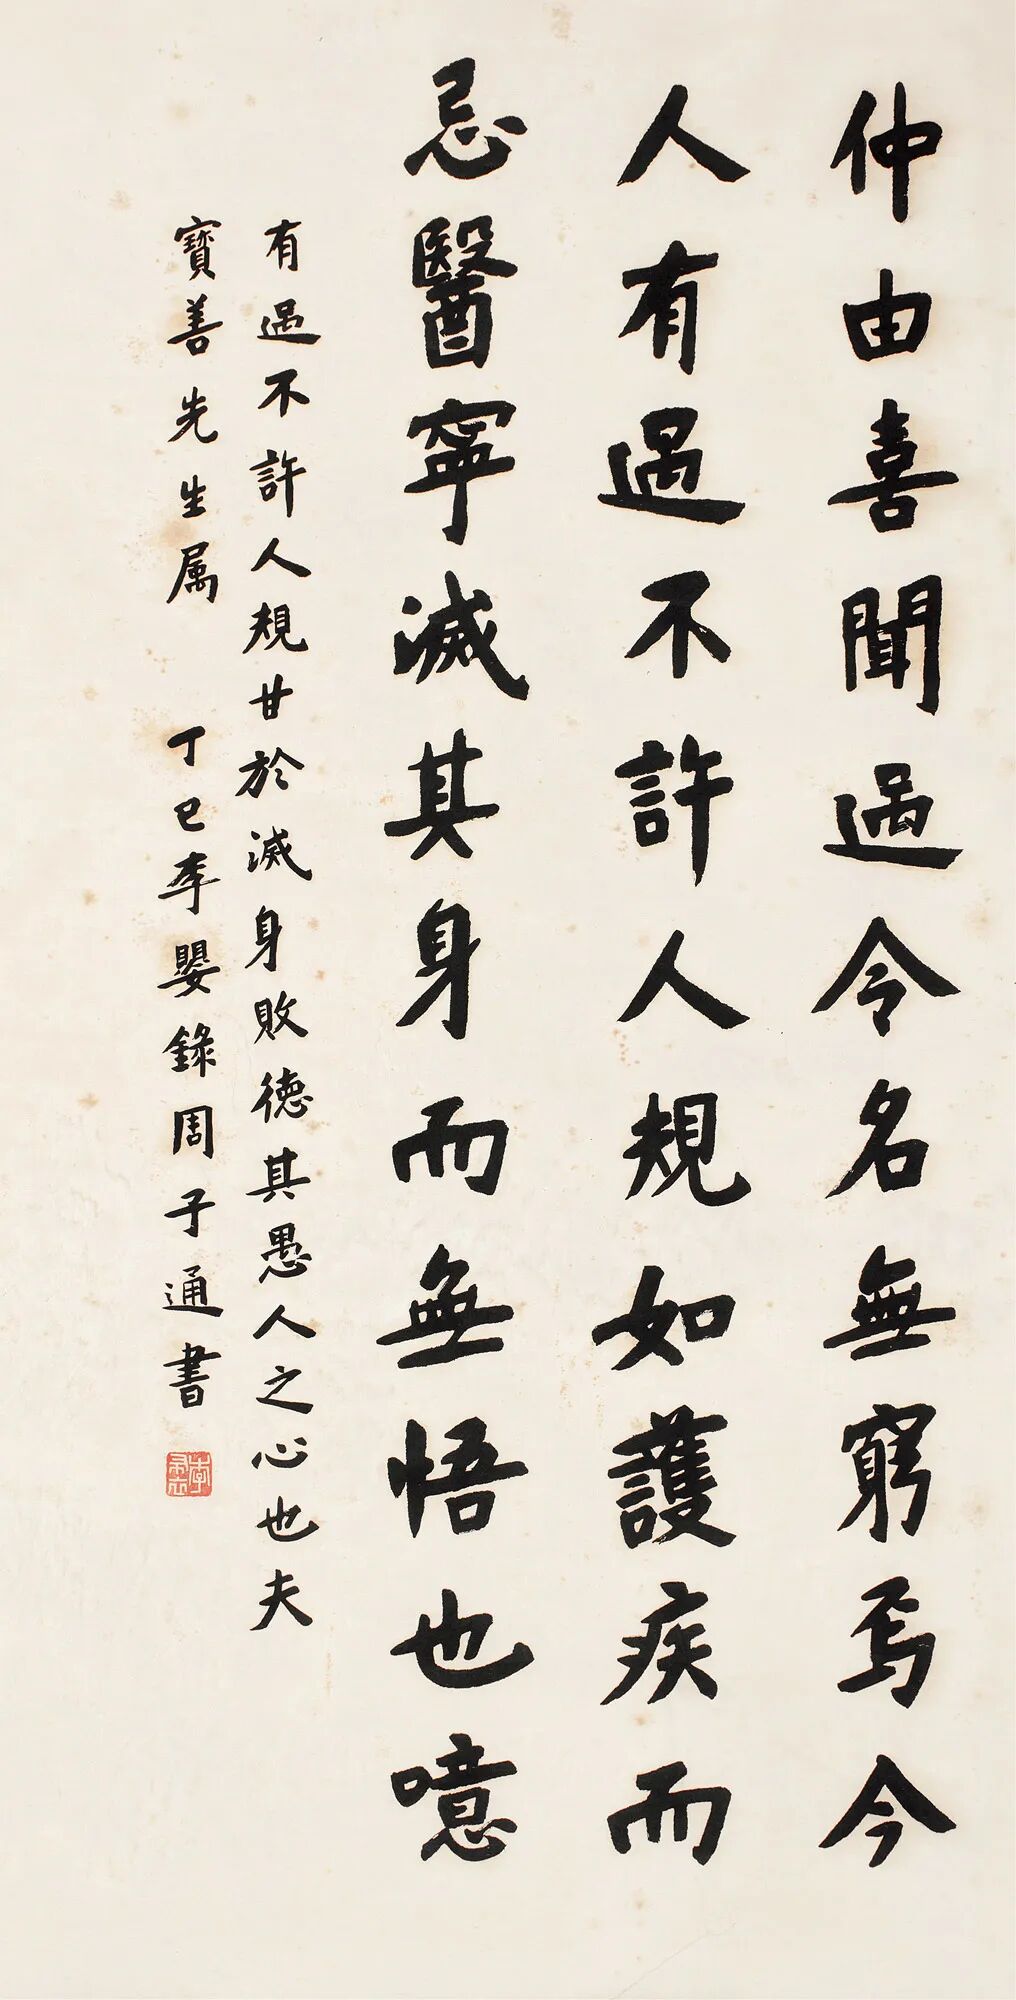 仲由喜聞過令名無窮焉今
人有過不許人規如護疾而
忌醫寧滅其身而無悟也噫
有過不許人規甘於滅身敗德其愚人之心也夫
寶善先生属 丁巳李嬰錄周子通書